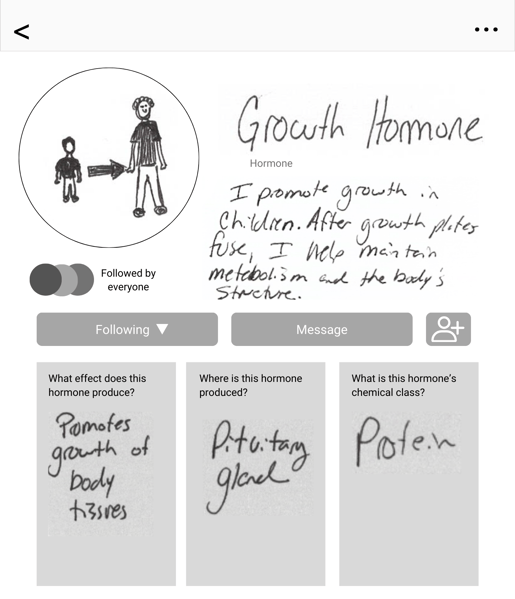 <
...
Growth Hormone
Hormone
I promote growth in
Children. After growth plates
fuse, I help maintain
metabolism and the body's
Structure.
Followed by
everyone
Following ▼
Message
What effect does this
hormone produce?
Promotes
growth of
body
tissues
Where is this hormone
produced?
Pituitary
gland
What is this hormone's
chemical class?
Protein